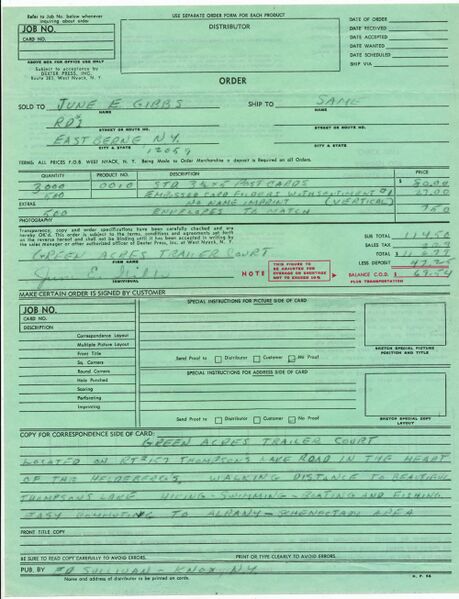 Refer to Job No. below whenever
inquiring about order
USE SEPARATE ORDER FORM FOR EACH PRODUCT
JOB NO.
CARD NO.
DISTRIBUTOR
DATE OF ORDER
DATE RECEIVED
DATE ACCEPTED
DATE WANTED
DATE SCHEDULED
SHIP VIA
ABOVE BOX FOR OFFICE USE ONLY
Subject to acceptance by
DEXTER PRESS, INC.
Route 303, West Nyack, N. Y.
ORDER
SOLD TO JUNE E GIBBS SHIP TO SAME
NAME NAME
RD#1
STREET OR ROUTE NO. STREET OR ROUTE NO.
EAST BERNE N.Y.
CITY & STATE CITY & STATE
12059
TERMS: ALL PRICES F.O.B. WEST NYACK, N. Y. Being Made to Order Merchandise a deposit is Required on all Orders.
QUANTITY PRODUCT NO. DESCRIPTION PRICE
3,000 0010 STD 3½x5 POST CARDS $ 80.00
500 EMBOSSED CARD FOLDERS WITH SENTIMENT #1 27.00
EXTRAS NO NAME IMPRINT (VERTICAL)
500 ENVELOPES TO MATCH 7.50
PHOTOGRAPHY
Transparency, copy and order specifications have been carefully checked and are
hereby OK'd. This order is subject to the terms, conditions and agreements set forth
on the reverse hereof and shall not be binding until it has been accepted in writing by
the sales manager or other authorized officer of Dexter Press, Inc. at West Nyack, N. Y.
SUB TOTAL 114.50
SALES TAX 2.29
TOTAL $ 116.79
LESS DEPOSIT 47.25
BALANCE C.O.D. $ 69.54
PLUS TRANSPORTATION
GREEN ACRES TRAILER COURT
FIRM NAME
June E. Gibbs
INDIVIDUAL
NOTE
THIS FIGURE TO
BE ADJUSTED FOR
OVERAGE OR SHORTAGE
NOT TO EXCEED 10%
MAKE CERTAIN ORDER IS SIGNED BY CUSTOMER
JOB NO.
CARD NO.
DESCRIPTION
Correspondence Layout
Multiple Picture Layout
Front Title
Sq. Corners
Round Corners
Hole Punched
Scoring
Perforating
Imprinting
SPECIAL INSTRUCTIONS FOR PICTURE SIDE OF CARD:
Send Proof to Distributor Customer No Proof
SKETCH SPECIAL PICTURE
POSITION AND TITLE
SPECIAL INSTRUCTIONS FOR ADDRESS SIDE OF CARD:
Send Proof to Distributor Customer No Proof
SKETCH SPECIAL COPY
LAYOUT
COPY FOR CORRESPONDENCE SIDE OF CARD:
GREEN ACRES TRAILER COURT
LOCATED ON RT#157 THOMPSONS LAKE ROAD IN THE HEART
OF THE HELDERBERGS. WALKING DISTANCE TO BEAUTIFUL
THOMPSONS LAKE HIKING - SWIMMING - BOATING AND FISHING.
EASY COMMUTING TO ALBANY - SCHENECTADY AREA
FRONT TITLE COPY
BE SURE TO READ COPY CAREFULLY TO AVOID ERRORS. PRINT OR TYPE CLEARLY TO AVOID ERRORS.
PUB. BY ED SULLIVAN - KNOX, N.Y.
Name and address of distributor to be printed on cards.